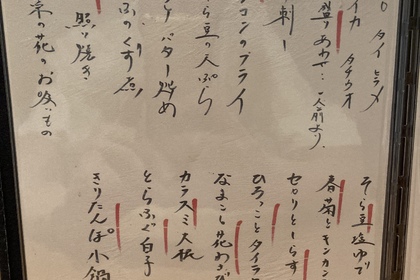 タイ ヒラメ
イカ タチウオ
盛りあわせ…一人前より、
刺し
コンのフライ
ら豆の天ぷら
バター炒め
ふのくず煮
照り焼き
菜の花のお吸いもの
そら豆塩ゆで
春菊とキンカン
セリとしらす
ひろっことタイラ
なまこと花わさび
カラスミ大根
とらふぐ白子
きりたんぽ小鍋